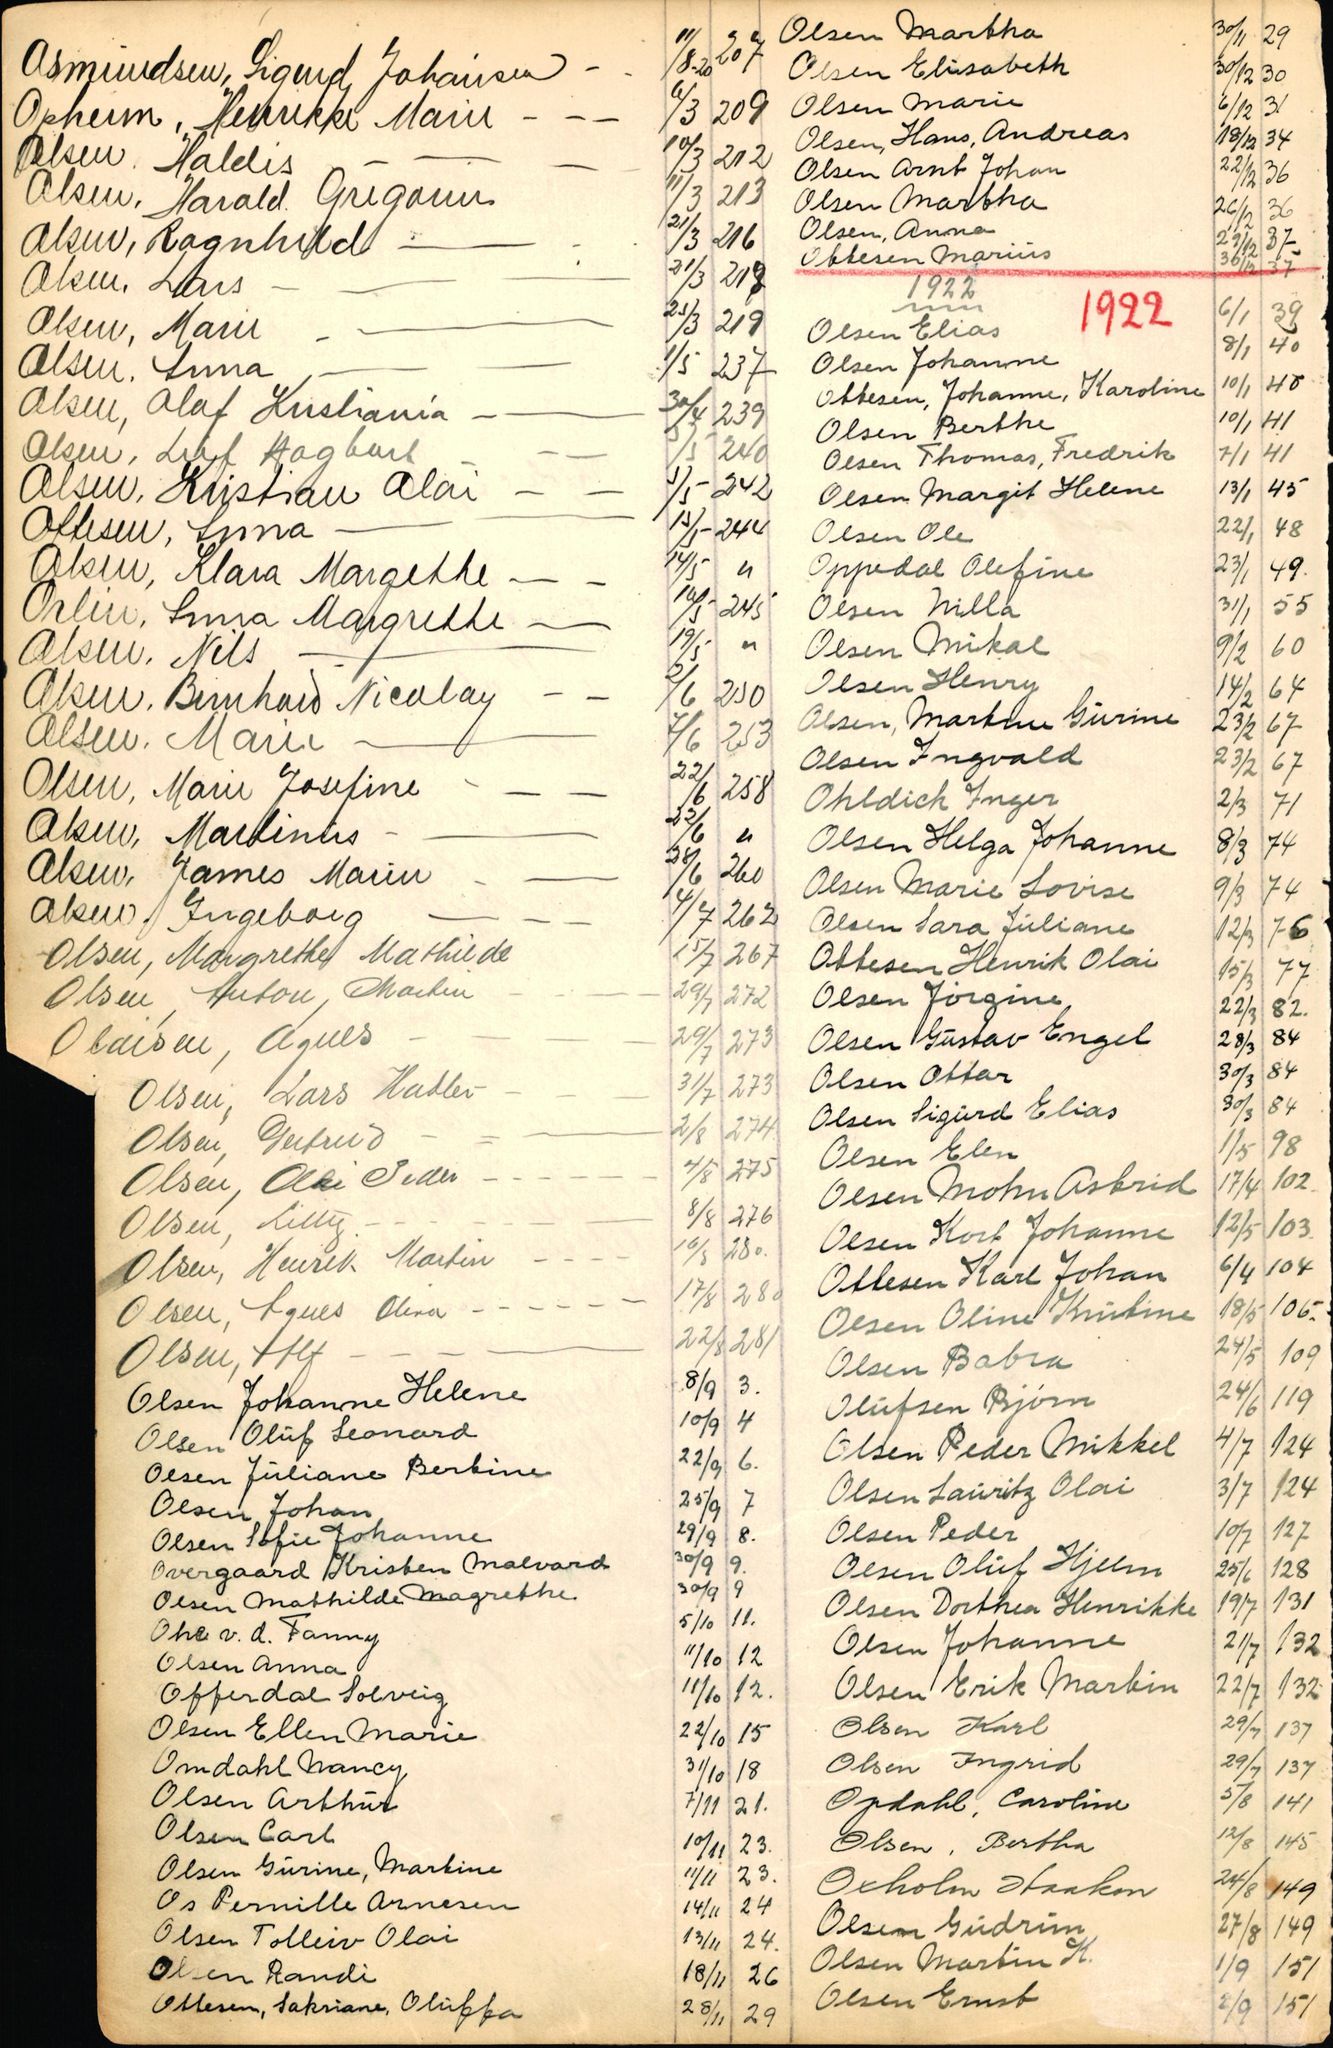 Osmundsen, Sigurd Johansen - - 11/8-20 207
Opheim, Henrikke Marie - - - 6/3 209
Olsen, Haldis - - - 10/3 212
Olsen, Harald Gregorius 11/3 213
Olsen, Ragnhild - - 21/3 216
Olsen, Lars - - 21/3 218
Olsen, Marie - - 23/3 219
Olsen, Anna - - 1/5 237
Olsen, Olaf Kristiania - - 30/4 239
Olsen, Leif Hagbart - - 3/5 240
Olsen, Kristian Olai - - 5/5 242
Ottesen, Anna - - 13/5 244
Olsen, Klara Margethe - - 14/5 "
Orlin, Anna Margrethe - - 16/5 245
Olsen, Nils - - 19/5 "
Olsen, Bernhard Nicolay - - 2/6 250
Olsen, Marie - - 7/6 253
Olsen, Marie Josefine - - - 22/6 258
Olsen, Martinus - - 22/6 "
Olsen, James Marin - - 28/6 260
Olsen, Ingeborg - - - 4/7 262
Olsen, Margrethe Mathilde 15/7 267
Olsen, Anton, Martin - - - 29/7 272
Olaisen, Agnes - - - 29/7 273
Olsen, Lars Hatlev - - - 31/7 273
Olsen, Gertrud - = - 2/8 274
Olsen, Olai Peder - - - - - 4/8 275
Olsen, Lilly - - - - 8/8 276
Olsen, Henrik Martin - - - - 16/8 280.
Olsen, Agnes Oliva - - - - - - 17/8 280
Olsen, Alf - - - - 22/8 281
Olsen Johanne Helene 8/9 3.
Olsen Oluf Leonard 10/9 4
Olsen Juliane Bertine 22/9 6.
Olsen Johan 25/9 7
Olsen Sofie Johanne 29/9 8.
Overgaard Kristen Malvard 30/9 9.
Olsen Mathilde Magrethe 30/9 9
Ohe v. d. Fanny 5/10 11.
Olsen Anna 11/10 12
Offerdal Solveig 11/10 12.
Olsen Ellen Marie 22/10 15
Omdahl Nancy 31/10 18
Olsen Arthur 7/11 21.
Olsen Carl 10/11 23.
Olsen Gurine, Martine 11/11 23.
Os Pernille Arnesen 14/11 24
Olsen Tolleiv Olai 13/11 24.
Olsen Randi 18/11 26
Ottesen, Sakriane, Oluffa 28/11 29
Olsen Martha 30/11 29
Olsen Elisabeth 30/12 30
Olsen Marie 6/12 31
Olsen, Hans, Andreas 18/12 34
Olsen Arnt Johan 22/12 36
Olsen Martha 26/12 36
Olsen, Anna 29/12 37
Ottesen Marius 30/12 37
1922 1922
Olsen Elias 6/1 39
Olsen Johanne 8/1 40
Ottesen, Johanne, Karoline 10/1 40
Olsen Berthe 10/1 41
Olsen Thomas, Fredrik 7/1 41
Olsen Margit Helene 13/1 45
Olsen Ole 22/1 48
Oppedal Olefine 23/1 49.
Olsen Nilla 31/1 55
Olsen Mikal 9/2 60
Olsen Henry 14/2 64
Olsen, Martine Gurine 23/2 67
Olsen Ingvald 23/2 67
Ohldich Inger 2/3 71
Olsen Helga Johanne 8/3 74
Olsen Marie Lovise 9/3 74
Olsen Sara Juliane 12/3 76
Ottesen Henrik Olai 15/3 77
Olsen Jörgine 22/3 82.
Olsen Gustav Engel 28/3 84
Olsen Ottar 30/3 84
Olsen Sigurd Elias 30/3 84
Olsen Elen 1/5 98
Olsen Mohn Astrid 17/4 102
Olsen Kort Johanne 12/5 103
Ottesen Karl Johan 6/4 104
Olsen Oline Kristine 18/5 106.
Olsen Babra 24/5 109
Olufsen Bjørn 24/6 119
Olsen Peder Mikkel 4/7 124
Olsen Lauritz Olai 3/7 124
Olsen Peder 10/7 127
Olsen Oluf Hjelm 25/6 128
Olsen Dorthea Henrikke 19/7 131
Olsen Johanne 21/7 132
Olsen Erik Martin 22/7 132
Olsen Karl 29/7 137
Olsen Ingrid 29/7 137
Opdahl, Caroline 5/8 141
Olsen, Bertha 12/8 145
Oxholm Haakon 24/8 149
Olsen Gudrun 27/8 149
Olsen Martin K. 1/9 151
Olsen Ernst 2/9 151